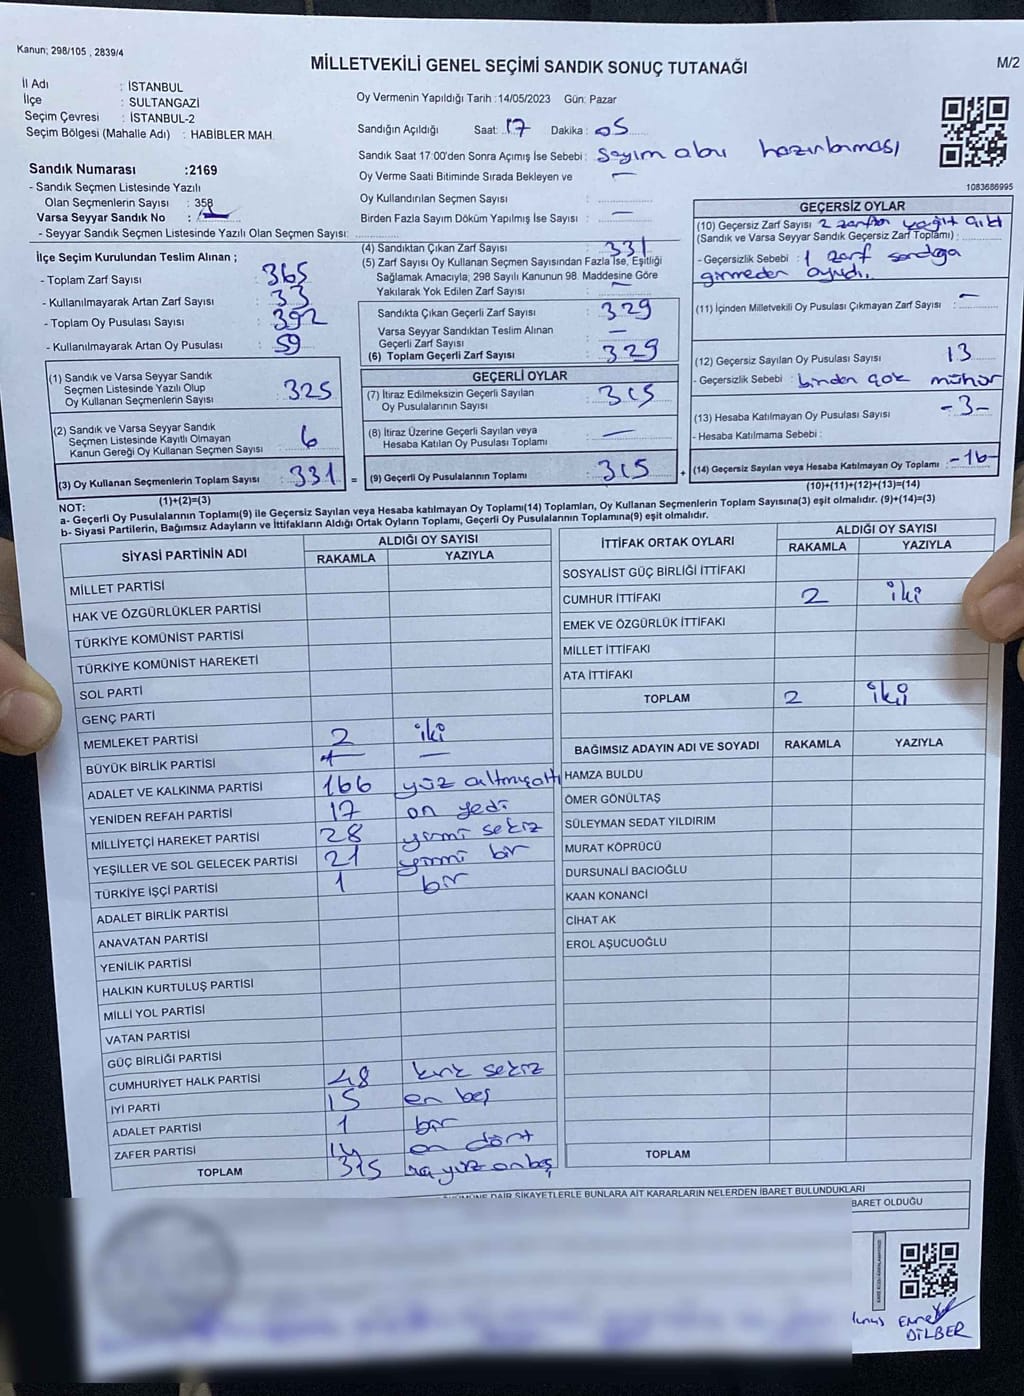 Kanun; 298/105 , 2839/4
MİLLETVEKİLİ GENEL SEÇİMİ SANDIK SONUÇ TUTANAĞI
M/2
İl Adı : İSTANBUL
İlçe : SULTANGAZİ
Seçim Çevresi : İSTANBUL-2
Seçim Bölgesi (Mahalle Adı) : HABİBLER MAH.
Oy Vermenin Yapıldığı Tarih :14/05/2023 Gün: Pazar
Sandığın Açıldığı Saat: 17 Dakika: 05
Sandık Saat 17:00'den Sonra Açımış İse Sebebi: Sayım alanı hazırlanması
Oy Verme Saati Bitiminde Sırada Bekleyen ve
Oy Kullandırılan Seçmen Sayısı : —
Birden Fazla Sayım Döküm Yapılmış İse Sayısı : —
1083686995
Sandık Numarası :2169
- Sandık Seçmen Listesinde Yazılı
Olan Seçmenlerin Sayısı : 358
Varsa Seyyar Sandık No :
- Seyyar Sandık Seçmen Listesinde Yazılı Olan Seçmen Sayısı:
İlçe Seçim Kurulundan Teslim Alınan ;
- Toplam Zarf Sayısı : 365
- Kullanılmayarak Artan Zarf Sayısı : 33
- Toplam Oy Pusulası Sayısı : 392
- Kullanılmayarak Artan Oy Pusulası : 59
(1) Sandık ve Varsa Seyyar Sandık
Seçmen Listesinde Yazılı Olup
Oy Kullanan Seçmenlerin Sayısı : 325
(2) Sandık ve Varsa Seyyar Sandık
Seçmen Listesinde Kayıtlı Olmayan
Kanun Gereği Oy Kullanan Seçmen Sayısı : 6
(3) Oy Kullanan Seçmenlerin Toplam Sayısı : 331
(1)+(2)=(3)
(4) Sandıktan Çıkan Zarf Sayısı : 331
(5) Zarf Sayısı Oy Kullanan Seçmen Sayısından Fazla İse, Eşitliği
Sağlamak Amacıyla; 298 Sayılı Kanunun 98. Maddesine Göre
Yakılarak Yok Edilen Zarf Sayısı : —
Sandıkta Çıkan Geçerli Zarf Sayısı : 329
Varsa Seyyar Sandıktan Teslim Alınan
Geçerli Zarf Sayısı : —
(6) Toplam Geçerli Zarf Sayısı : 329
GEÇERLİ OYLAR
(7) İtiraz Edilmeksizin Geçerli Sayılan
Oy Pusulalarının Sayısı : 315
(8) İtiraz Üzerine Geçerli Sayılan veya
Hesaba Katılan Oy Pusulası Toplamı : —
= (9) Geçerli Oy Pusulalarının Toplamı : 315
GEÇERSİZ OYLAR
(10) Geçersiz Zarf Sayısı 2 zarftan kağıt çıktı
(Sandık ve Varsa Seyyar Sandık Geçersiz Zarf Toplamı) :
- Geçersizlik Sebebi : 1 zarf sandığa
girmeden
(11) İçinden Milletvekili Oy Pusulası Çıkmayan Zarf Sayısı : —
(12) Geçersiz Sayılan Oy Pusulası Sayısı : 13
- Geçersizlik Sebebi : birden çok mühür
(13) Hesaba Katılmayan Oy Pusulası Sayısı : -3-
- Hesaba Katılmama Sebebi :
+ (14) Geçersiz Sayılan veya Hesaba Katılmayan Oy Toplamı : -16-
(10)+(11)+(12)+(13)=(14)
NOT:
a- Geçerli Oy Pusulalarının Toplamı(9) ile Geçersiz Sayılan veya Hesaba katılmayan Oy Toplamı(14) Toplamları, Oy Kullanan Seçmenlerin Toplam Sayısına(3) eşit olmalıdır. (9)+(14)=(3)
b- Siyasi Partilerin, Bağımsız Adayların ve İttifakların Aldığı Ortak Oyların Toplamı, Geçerli Oy Pusulalarının Toplamına(9) eşit olmalıdır.
SİYASİ PARTİNİN ADI ALDIĞI OY SAYISI
RAKAMLA YAZIYLA
MİLLET PARTİSİ
HAK VE ÖZGÜRLÜKLER PARTİSİ
TÜRKİYE KOMÜNİST PARTİSİ
TÜRKİYE KOMÜNİST HAREKETİ
SOL PARTİ
GENÇ PARTİ
MEMLEKET PARTİSİ 2 iki
BÜYÜK BİRLİK PARTİSİ — —
ADALET VE KALKINMA PARTİSİ 166 yüz altmışaltı
YENİDEN REFAH PARTİSİ 17 on yedi
MİLLİYETÇİ HAREKET PARTİSİ 28 yirmi sekiz
YEŞİLLER VE SOL GELECEK PARTİSİ 21 yirmi bir
TÜRKİYE İŞÇİ PARTİSİ 1 bir
ADALET BİRLİK PARTİSİ
ANAVATAN PARTİSİ
YENİLİK PARTİSİ
HALKIN KURTULUŞ PARTİSİ
MİLLİ YOL PARTİSİ
VATAN PARTİSİ
GÜÇ BİRLİĞİ PARTİSİ
CUMHURİYET HALK PARTİSİ 48 kırk sekiz
İYİ PARTİ 15 on beş
ADALET PARTİSİ 1 bir
ZAFER PARTİSİ 14 on dört
TOPLAM 315 yüz onbeş
İTTİFAK ORTAK OYLARI ALDIĞI OY SAYISI
RAKAMLA YAZIYLA
SOSYALİST GÜÇ BİRLİĞİ İTTİFAKI
CUMHUR İTTİFAKI 2 iki
EMEK VE ÖZGÜRLÜK İTTİFAKI
MİLLET İTTİFAKI
ATA İTTİFAKI
TOPLAM 2 iki
BAĞIMSIZ ADAYIN ADI VE SOYADI RAKAMLA YAZIYLA
HAMZA BULDU
ÖMER GÖNÜLTAŞ
SÜLEYMAN SEDAT YILDIRIM
MURAT KÖPRÜCÜ
DURSUNALİ BACIOĞLU
KAAN KONANCİ
CİHAT AK
EROL AŞUCUOĞLU
TOPLAM
DAİR ŞİKAYETLERLE BUNLARA AİT KARARLARIN NELERDEN İBARET BULUNDUKLARI
BARET OLDUĞU
DİLBER